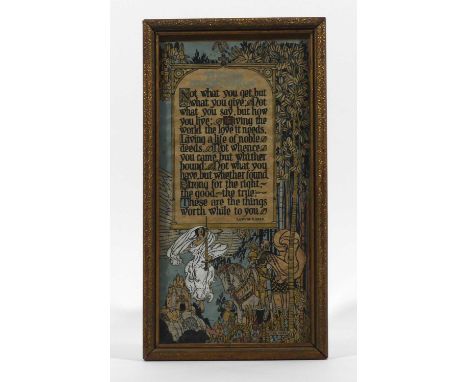 Not what you get, but
what you give; Not
what you say, but how
you live; Giving the
world the love it needs,
Living a life of noble
deeds. Not whence
you came, but whither
bound. Not what you
have, but whether sound
Strong for the right,
the good-the true-
These are the things
worth while to you.